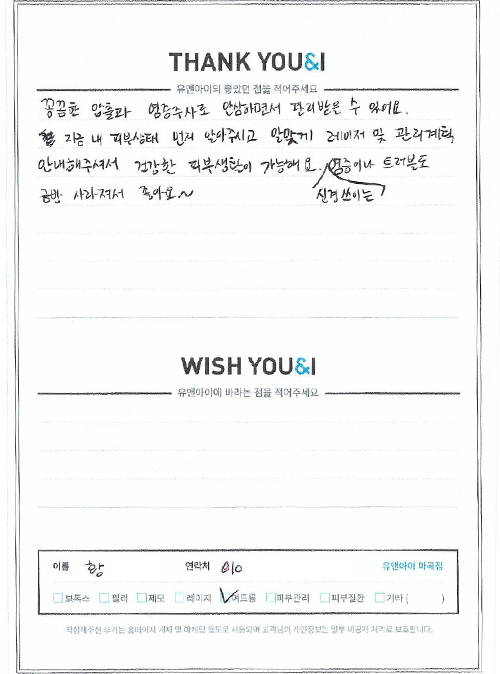 THANK YOU&I
유앤아이의 좋았던 점을 적어주세요
꼼꼼한 압출과 염증주사로 안심하면서 관리받을 수 있어요.
지금 내 피부상태 먼저 알아주시고 알맞게 레이저 및 관리계획
안내해주셔서 건강한 피부생활이 가능해요. 염증이나 트러블도
금방 사라져서 좋아요~ 신경쓰이는
WISH YOU&I
유앤아이에 바라는 점을 적어주세요
이름 황 연락처 010 유앤아이 마곡점
보톡스 필러 제모 레이저 여드름 피부관리 피부질환 기타 ( )
작성해주신 후기는 홈페이지 게재 및 마케팅 용도로 사용되며 고객님의 개인정보는 일부 비공개 처리로 보호됩니다.